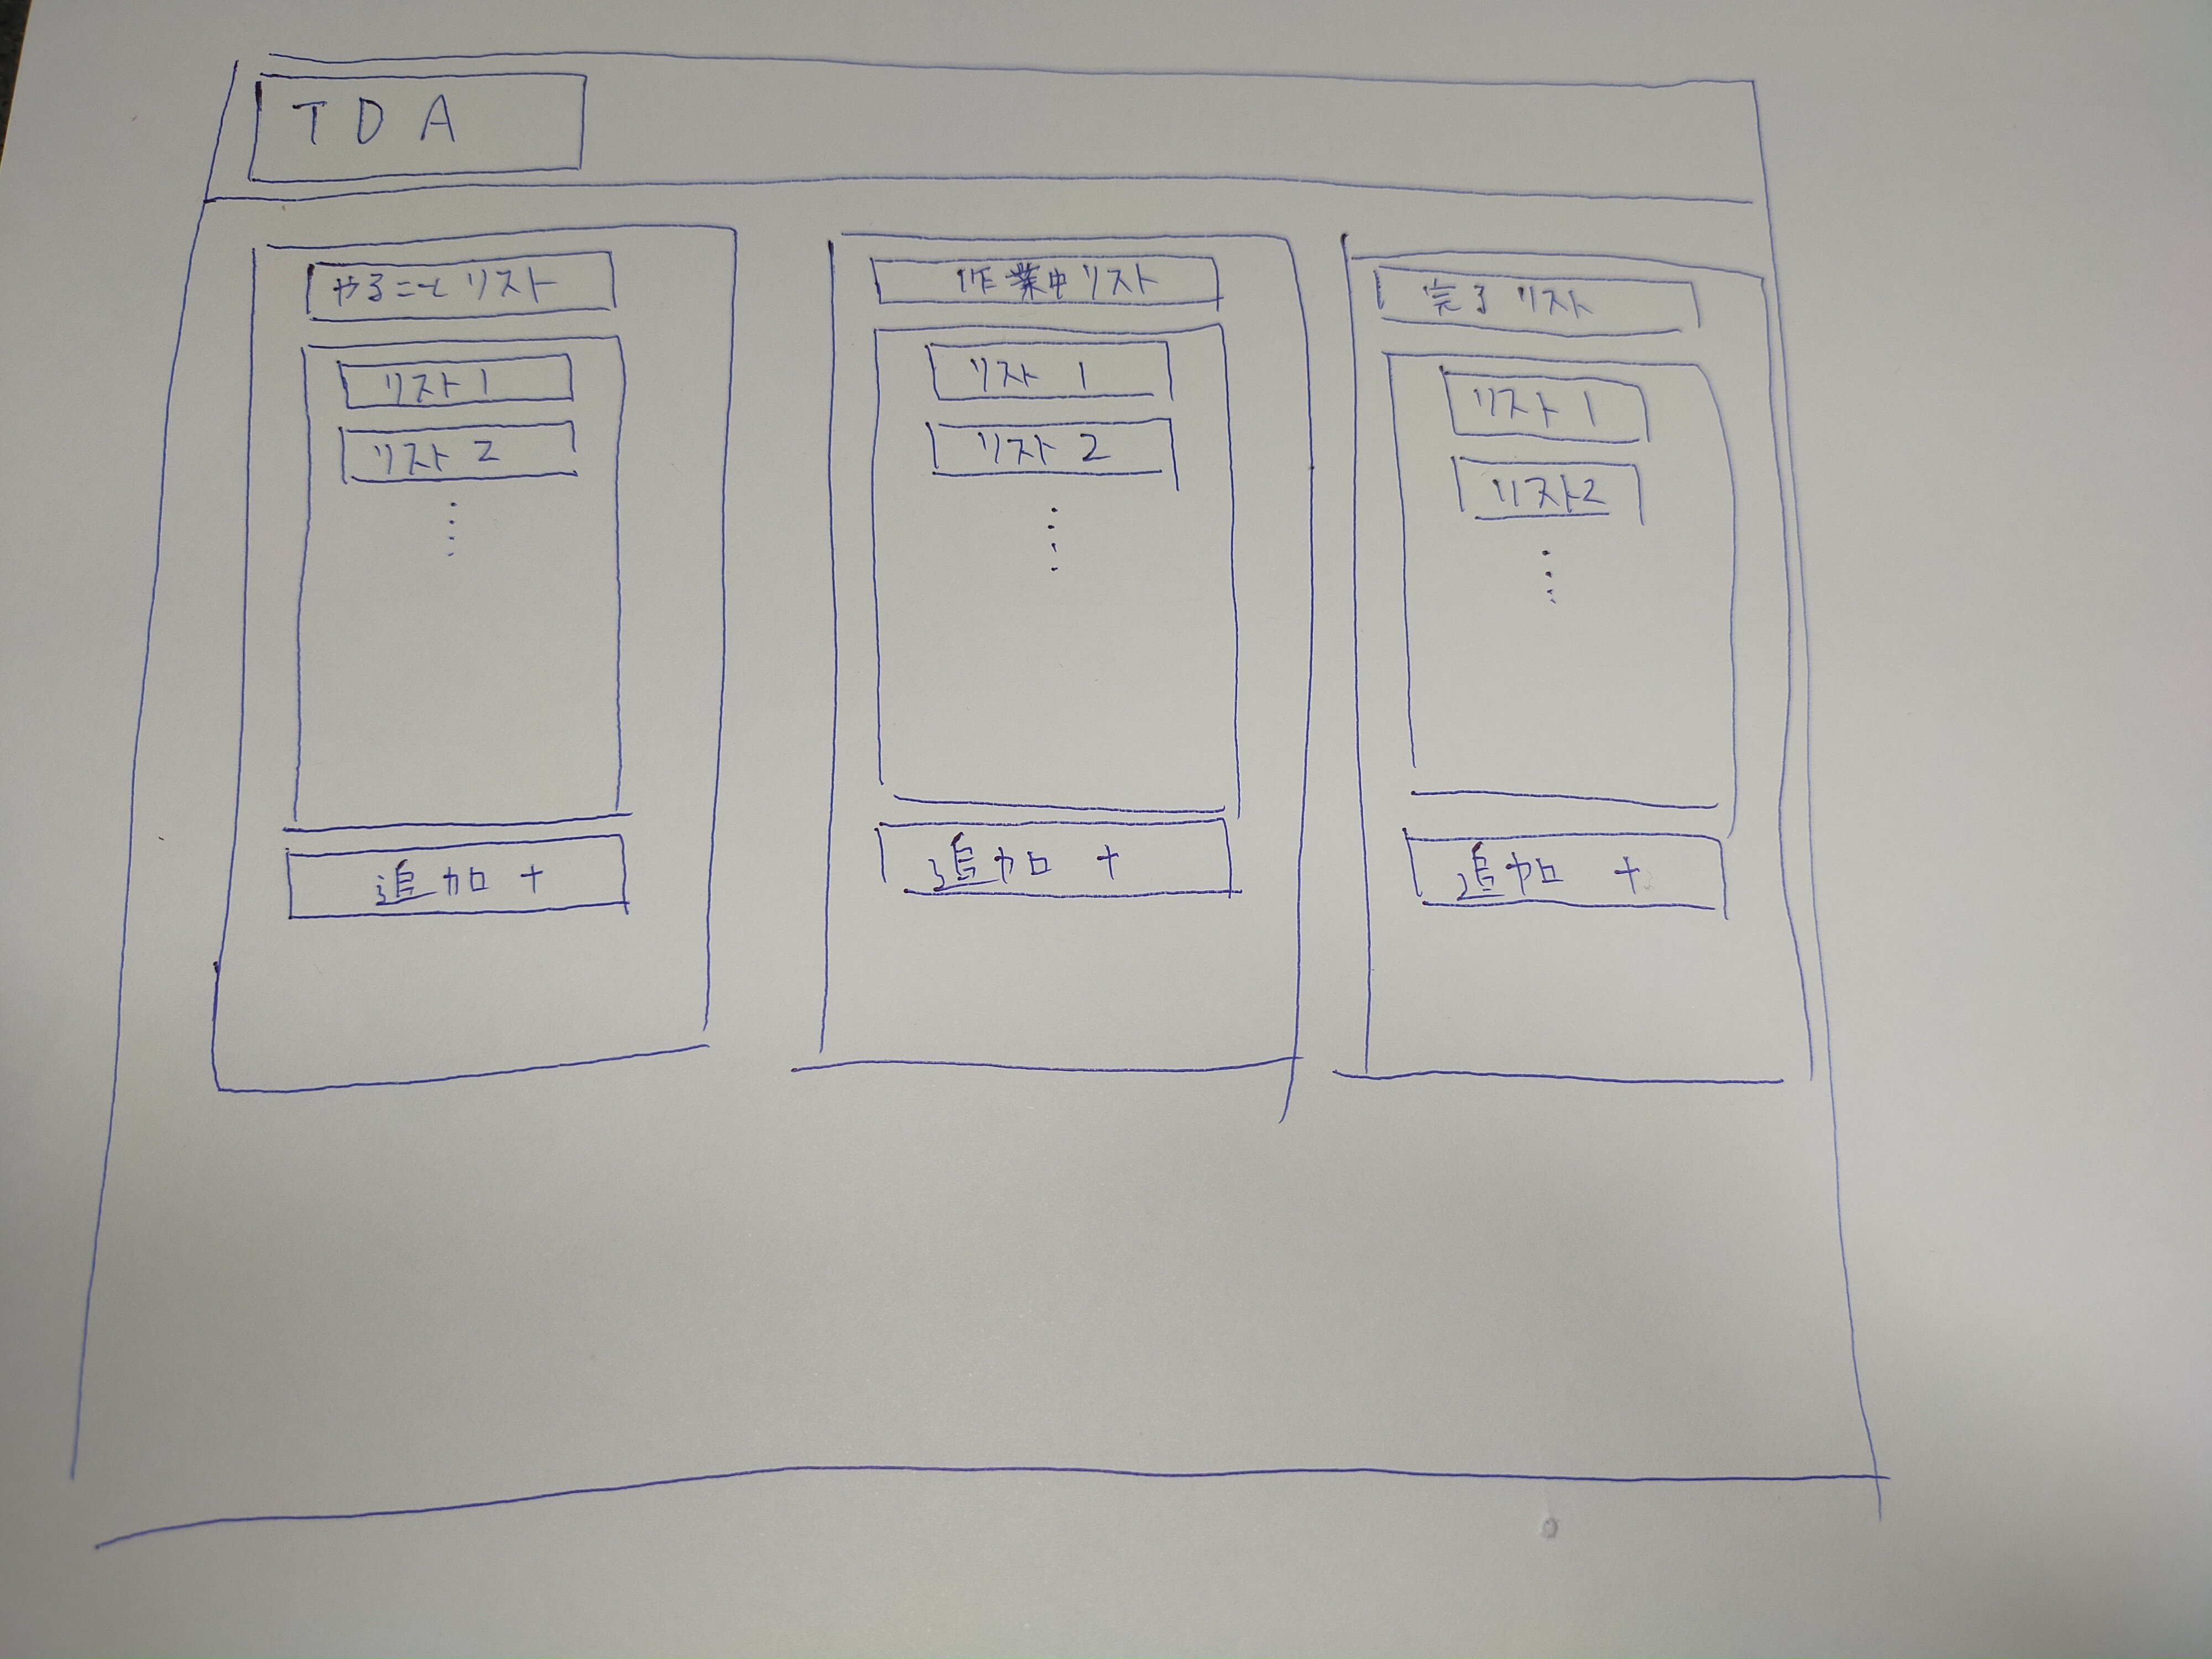 TDA
やること リスト
リスト 1
リスト 2
追加 +
作業中 リスト
リスト 1
リスト 2
追加 +
完了 リスト
リスト 1
リスト2
追加 +